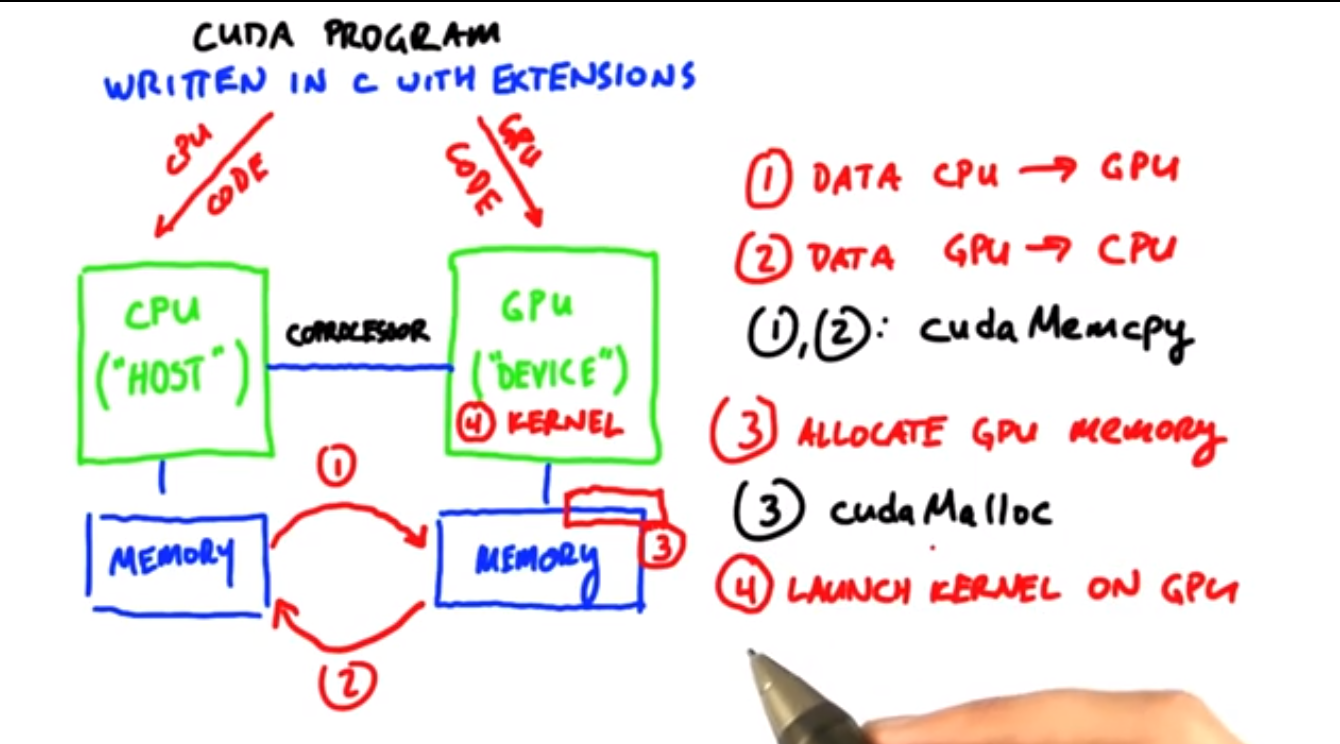 CUDA PROGRAM
WRITTEN IN C WITH EXTENSIONS
CPU
CODE
GPU
CODE
CPU
("HOST")
COPROCESSOR
GPU
("DEVICE")
④ KERNEL
①
MEMORY
MEMORY
③
②
① DATA CPU → GPU
② DATA GPU → CPU
①,②: cudaMemcpy
③ ALLOCATE GPU MEMORY
③ cudaMalloc
④ LAUNCH KERNEL ON GPU